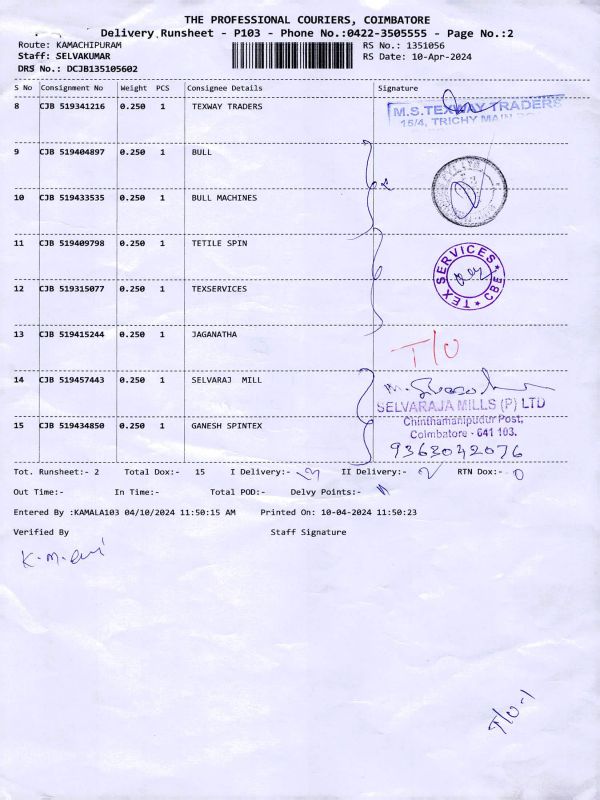 THE PROFESSIONAL COURIERS, COIMBATORE
Delivery Runsheet - P103 - Phone No.:0422-3505555 - Page No.:2
Route: KAMACHIPURAM RS No.: 1351056
Staff: SELVAKUMAR RS Date: 10-Apr-2024
DRS No.: DCJB135105602
S No Consignment No Weight PCS Consignee Details Signature
8 CJB 519341216 0.250 1 TEXWAY TRADERS
M.S.TEXWAY TRADERS
15/4, TRICHY MAIN
9 CJB 519404897 0.250 1 BULL
10 CJB 519433535 0.250 1 BULL MACHINES
11 CJB 519409798 0.250 1 TETILE SPIN
TEX SERVICES * CBE *
12 CJB 519315077 0.250 1 TEXSERVICES
13 CJB 519415244 0.250 1 JAGANATHA T/O
14 CJB 519457443 0.250 1 SELVARAJ MILL
SELVARAJA MILLS (P) LTD
Chinthamanipudur Post,
15 CJB 519434850 0.250 1 GANESH SPINTEX
Coimbatore - 641 103.
9363042076
Tot. Runsheet:- 2 Total Dox:- 15 I Delivery:- II Delivery:- RTN Dox:- 0
Out Time:- In Time:- Total POD:- Delvy Points:-
Entered By :KAMALA103 04/10/2024 11:50:15 AM Printed On: 10-04-2024 11:50:23
Verified By Staff Signature
T/O-1